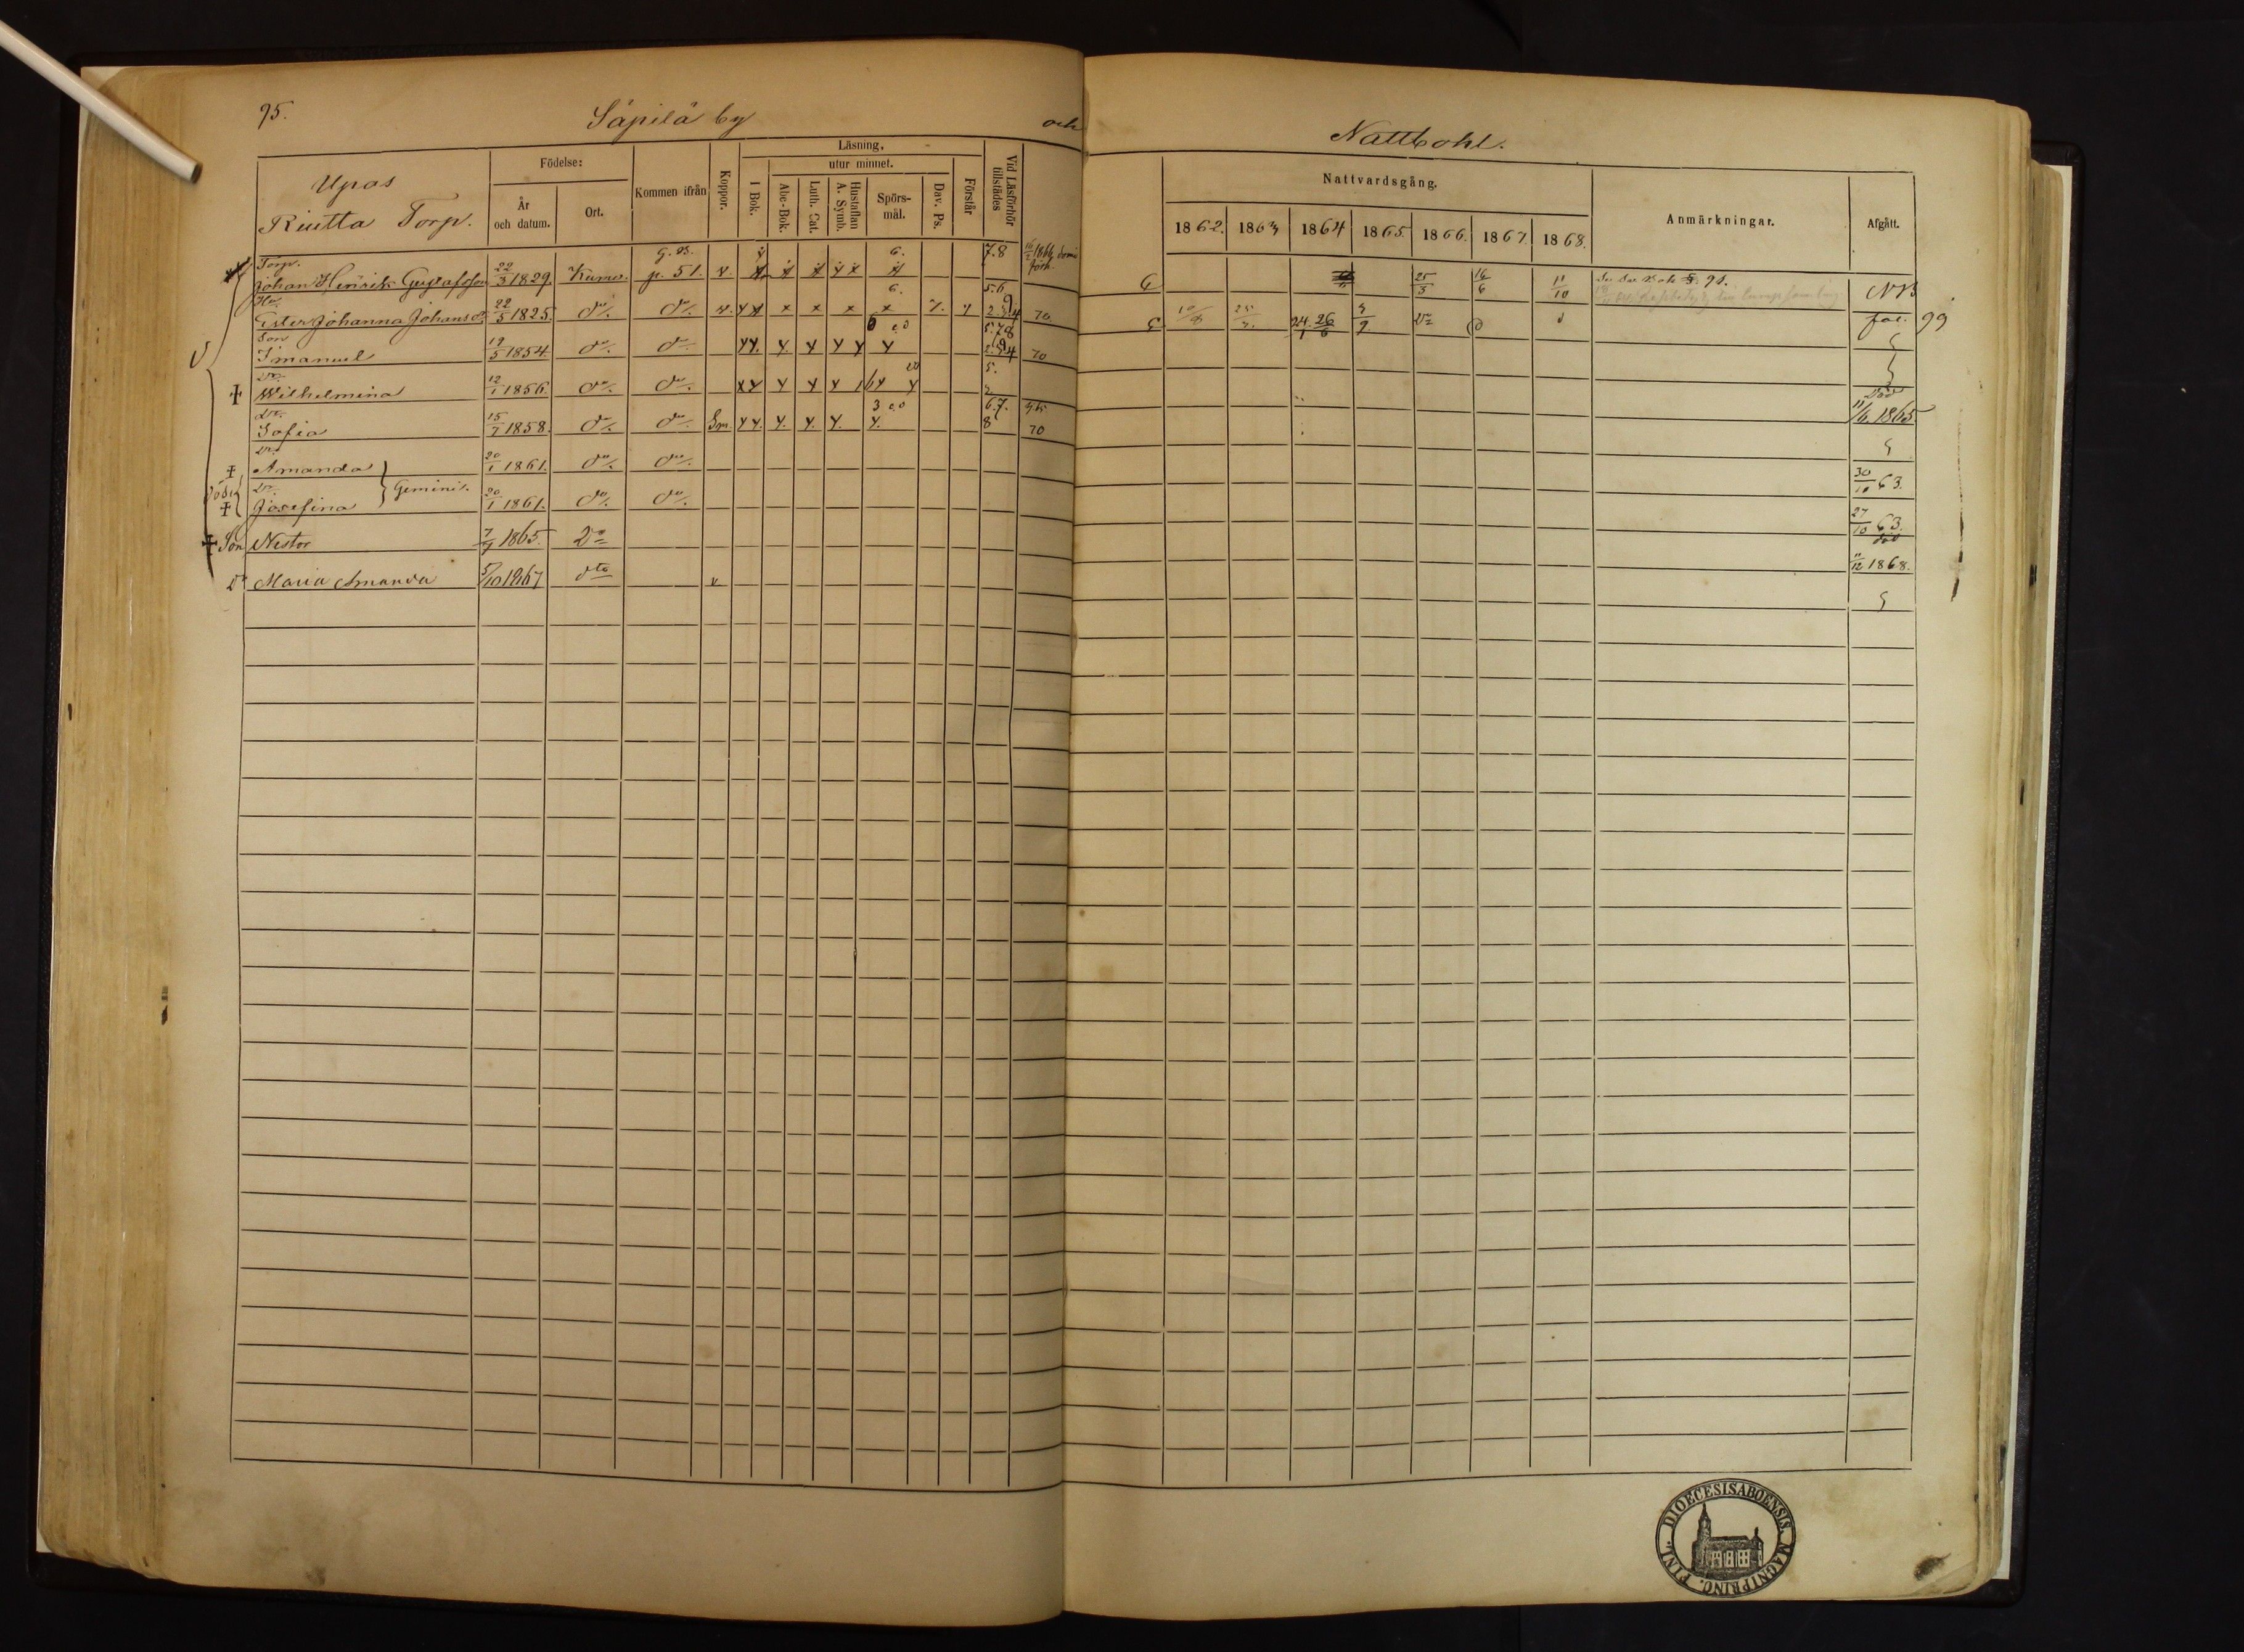 95.
Säpilä by
och
Nattbohl.
Upas
Riutta Torp.
Födelse:
År och datum.
Ort.
Kommen ifrån
Koppor.
Läsning,
utur minnet.
I Bok.
Abc-Bok.
Luth. Cat.
Hustaflan A. Symb.
Spörs-mål.
Dav. Ps.
Förstår
Vid Läsförhör tillstädes
Nattvardsgång.
1862. 1863 1864 1865. 1866. 1867. 1868.
Anmärkningar.
Afgått.
Torp.
Johan Henrik Gustafsson 22/3 1829. Kumo. p. 51. v. 6. 7.8 25/3 16/6 11/10 91. NB
Hu.
Ester Johanna Johansdr 22/5 1825. do do v. 6. 5.6 70 24. 26 do fol. 99
Son
Imanuel 19/5 1854. do do 5.78 70
Dr.
Wilhelmina 12/1 1856. do do 5. 2 Död 11/6. 1865.
Dr.
Sofia 15/7 1858. do do 3 6.7. 8 70
Dr.
Amanda 20/1 1861. do do 30/10 63.
Döde
Dr.
Josefina Gemini. 20/1 1861. do do 27/10 63.
Son Nestor 7/9 1865. Do död 11/12 1868.
Dr Maria Amanda 5/10 1867 dto v
DIOECESIS ABOENSIS. MAGNI PRINC. FINL.